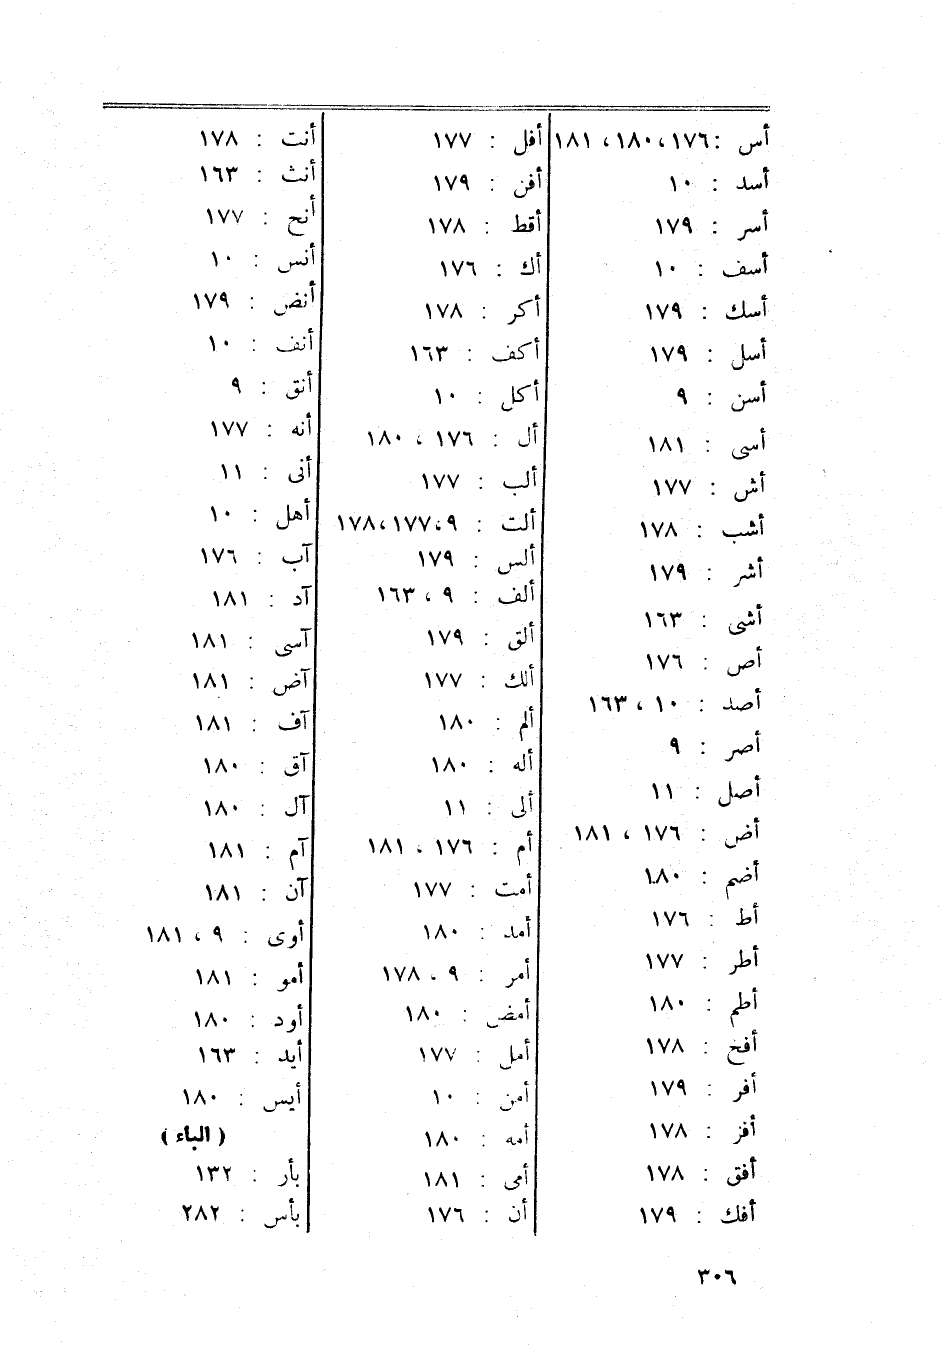 أس : ١٧٦، ١٨٠، ١٨١
أسد : ١٠
أسر : ١٧٩
أسف : ١٠
أسك : ١٧٩
أسل : ١٧٩
أسن : ٩
أسى : ١٨١
أش : ١٧٧
أشب : ١٧٨
أشر : ١٧٩
أشى : ١٦٣
أص : ١٧٦
أصد : ١٠ ، ١٦٣
أصر : ٩
أصل : ١١
أض : ١٧٦ ، ١٨١
أضم : ١٨٠
أط : ١٧٦
أطر : ١٧٧
أطم : ١٨٠
أفخ : ١٧٨
أفر : ١٧٩
أفز : ١٧٨
أفق : ١٧٨
أفك : ١٧٩
أفل : ١٧٧
أفن : ١٧٩
أقط : ١٧٨
أك : ١٧٦
أكر : ١٧٨
أكف : ١٦٣
أكل : ١٠
أل : ١٧٦ ، ١٨٠
ألب : ١٧٧
ألت : ٩، ١٧٧، ١٧٨
ألس : ١٧٩
ألف : ٩ ، ١٦٣
ألق : ١٧٩
ألك : ١٧٧
ألم : ١٨٠
أله : ١٨٠
ألى : ١١
أم : ١٧٦ ، ١٨١
أمت : ١٧٧
أمد : ١٨٠
أمر : ٩ ، ١٧٨
أمض : ١٨٠
أمل : ١٧٧
أمن : ١٠
أمه : ١٨٠
أمى : ١٨١
أن : ١٧٦
أنت : ١٧٨
أنث : ١٦٣
أنح : ١٧٧
أنس : ١٠
أنض : ١٧٩
أنف : ١٠
أنق : ٩
أنه : ١٧٧
أنى : ١١
أهل : ١٠
آب : ١٧٦
آد : ١٨١
آسى : ١٨١
آض : ١٨١
آف : ١٨١
آق : ١٨٠
آل : ١٨٠
آم : ١٨١
آن : ١٨١
أوى : ٩ ، ١٨١
أمو : ١٨١
أود : ١٨٠
أيد : ١٦٣
أيس : ١٨٠
( الباء )
بأر : ١٣٢
بأس : ٢٨٢
٣٠٦